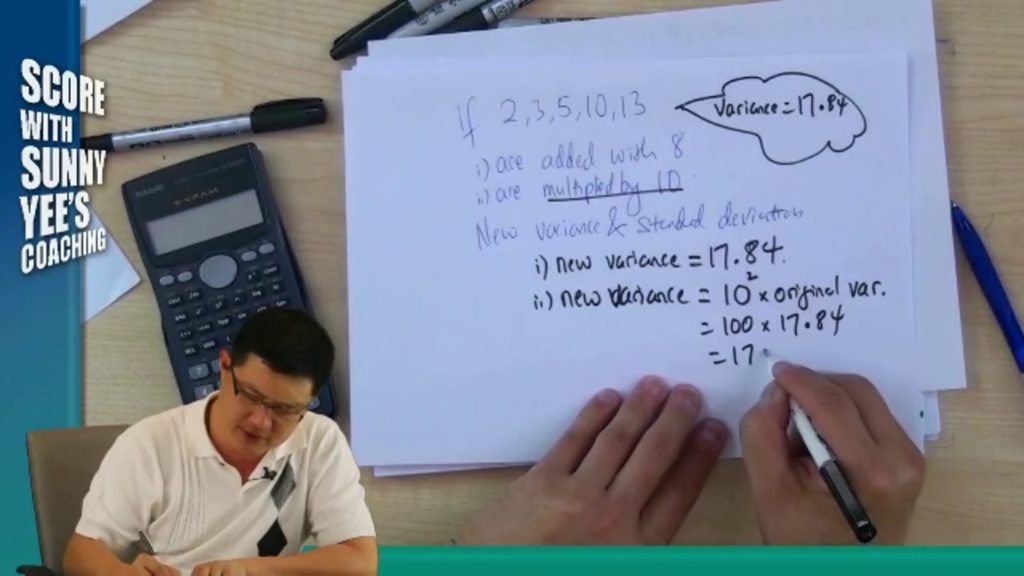 SCORE
WITH
SUNNY
YEE'S
COACHING
CASIO
S-V.P.A.M
If 2,3,5,10,13
variance=17.84
i) are added with 8
ii) are multipled by 10
New variance & standard deviation
i) new variance = 17.84.
ii) new variance = 10² × original var.
= 100 × 17.84
= 17